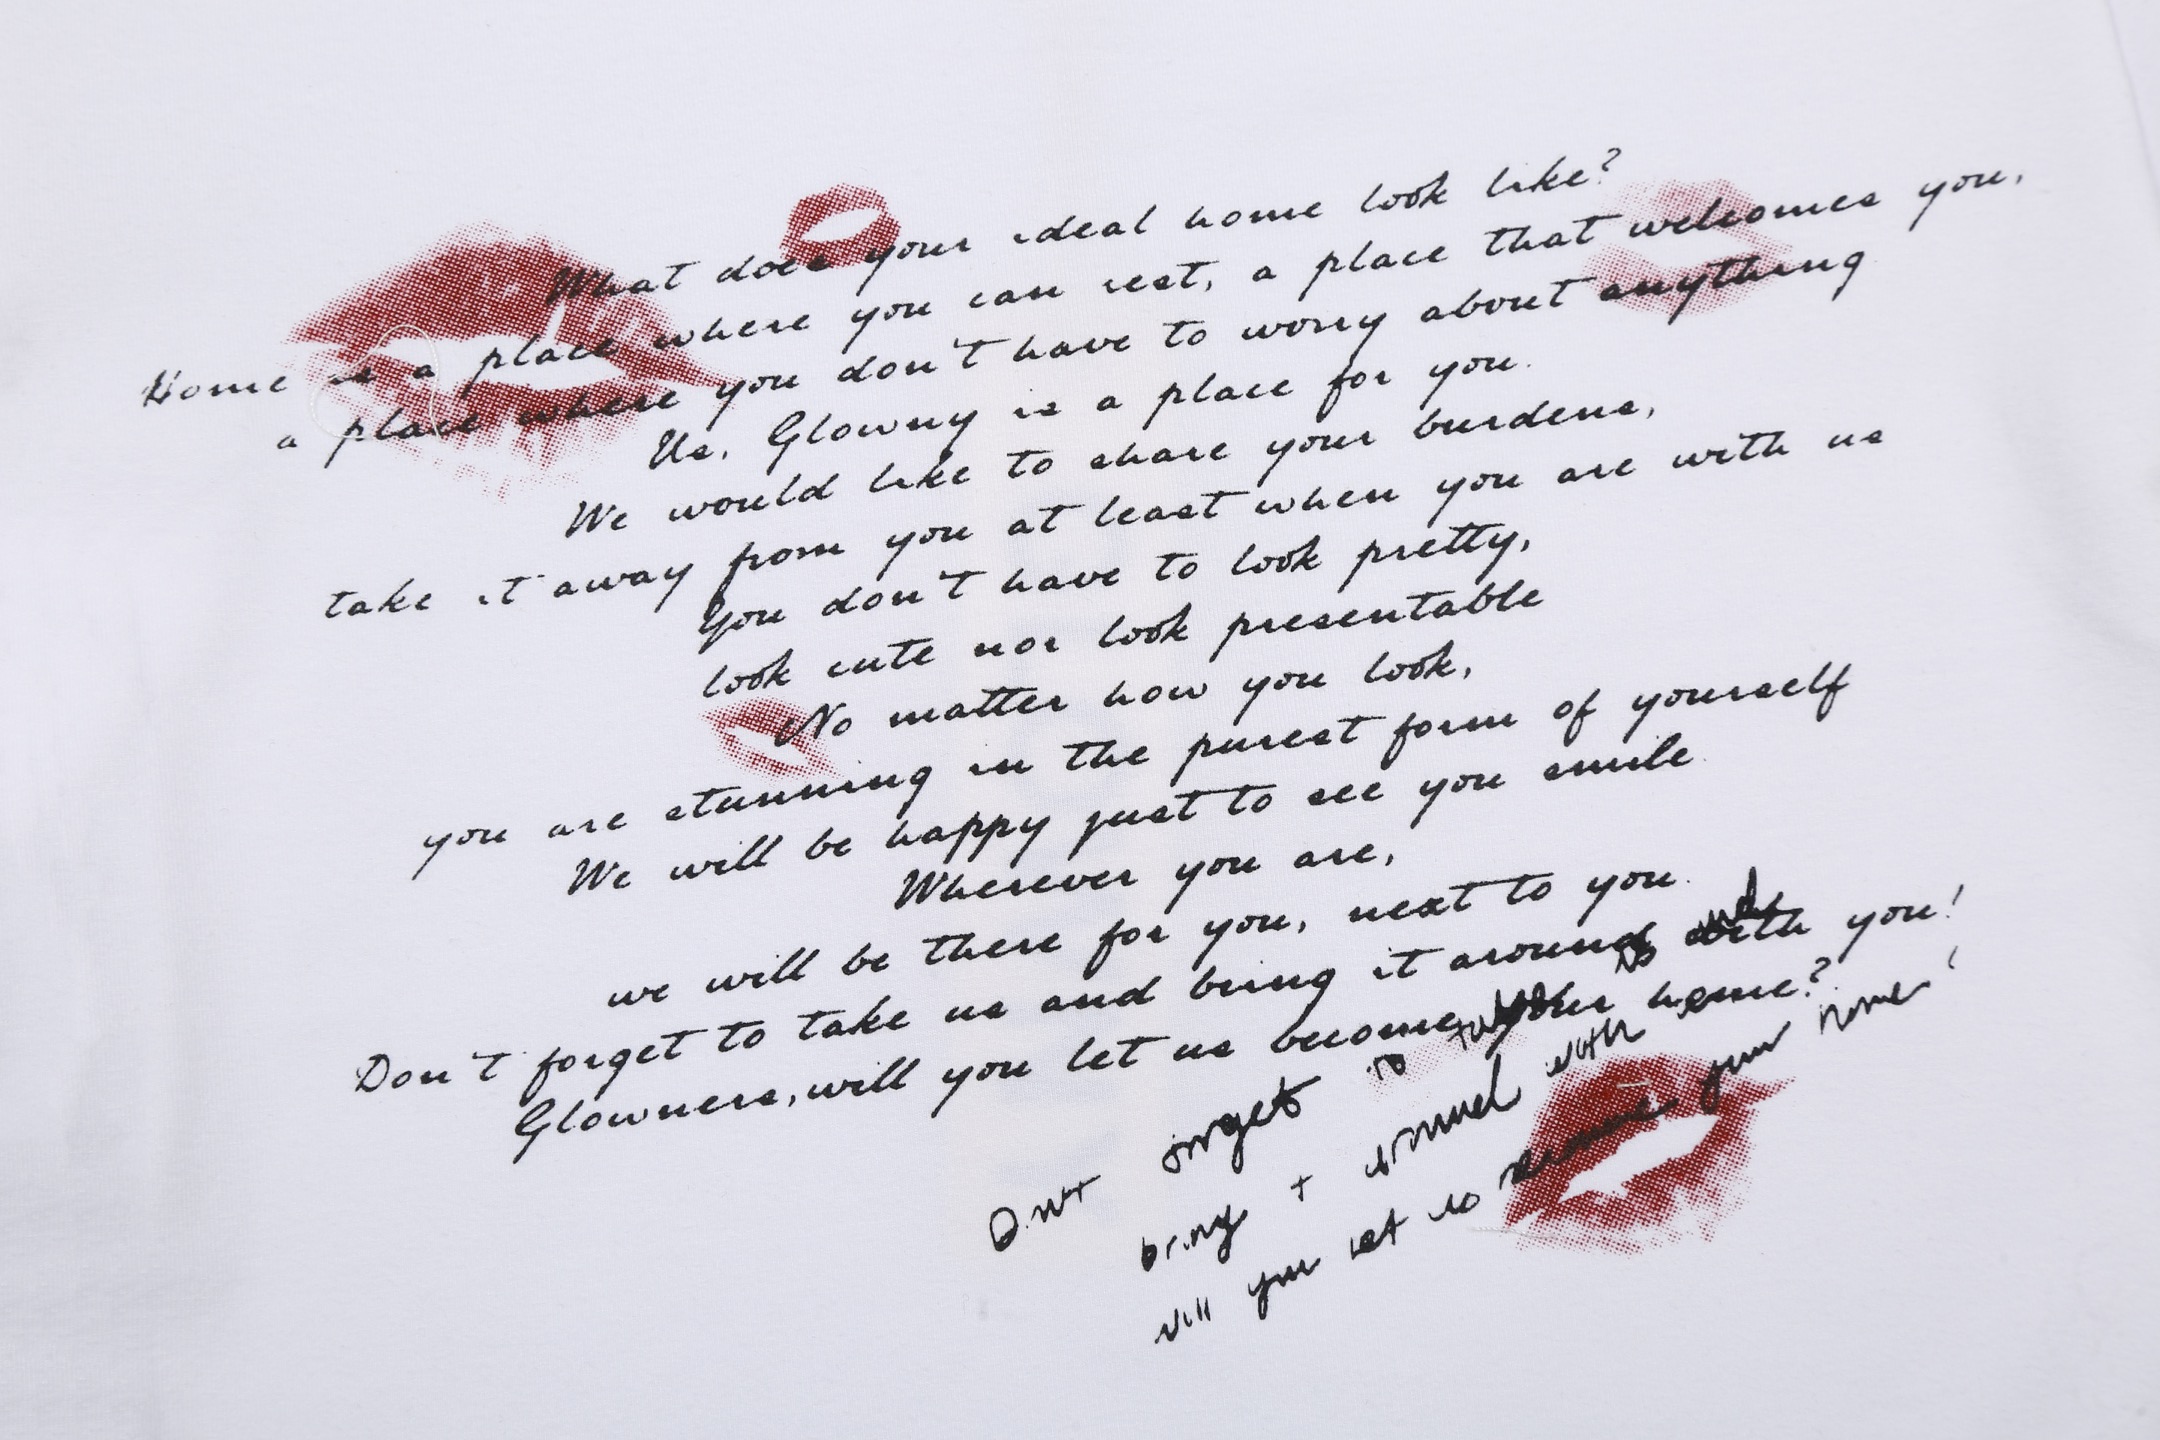 What does your ideal home look like?
Home is a place where you can rest, a place that welcomes you,
a place where you don't have to worry about anything
Us, Glowny is a place for you.
We would like to share your burdens,
take it away from you at least when you are with us
You don't have to look pretty,
look cute nor look presentable
No matter how you look,
you are stunning in the purest form of yourself
We will be happy just to see you smile.
Wherever you are,
we will be there for you, next to you.
Don't forget to take us and bring it around with you!
Glowners, will you let us become your home?
to take us and
bring it with
will you let us become your home